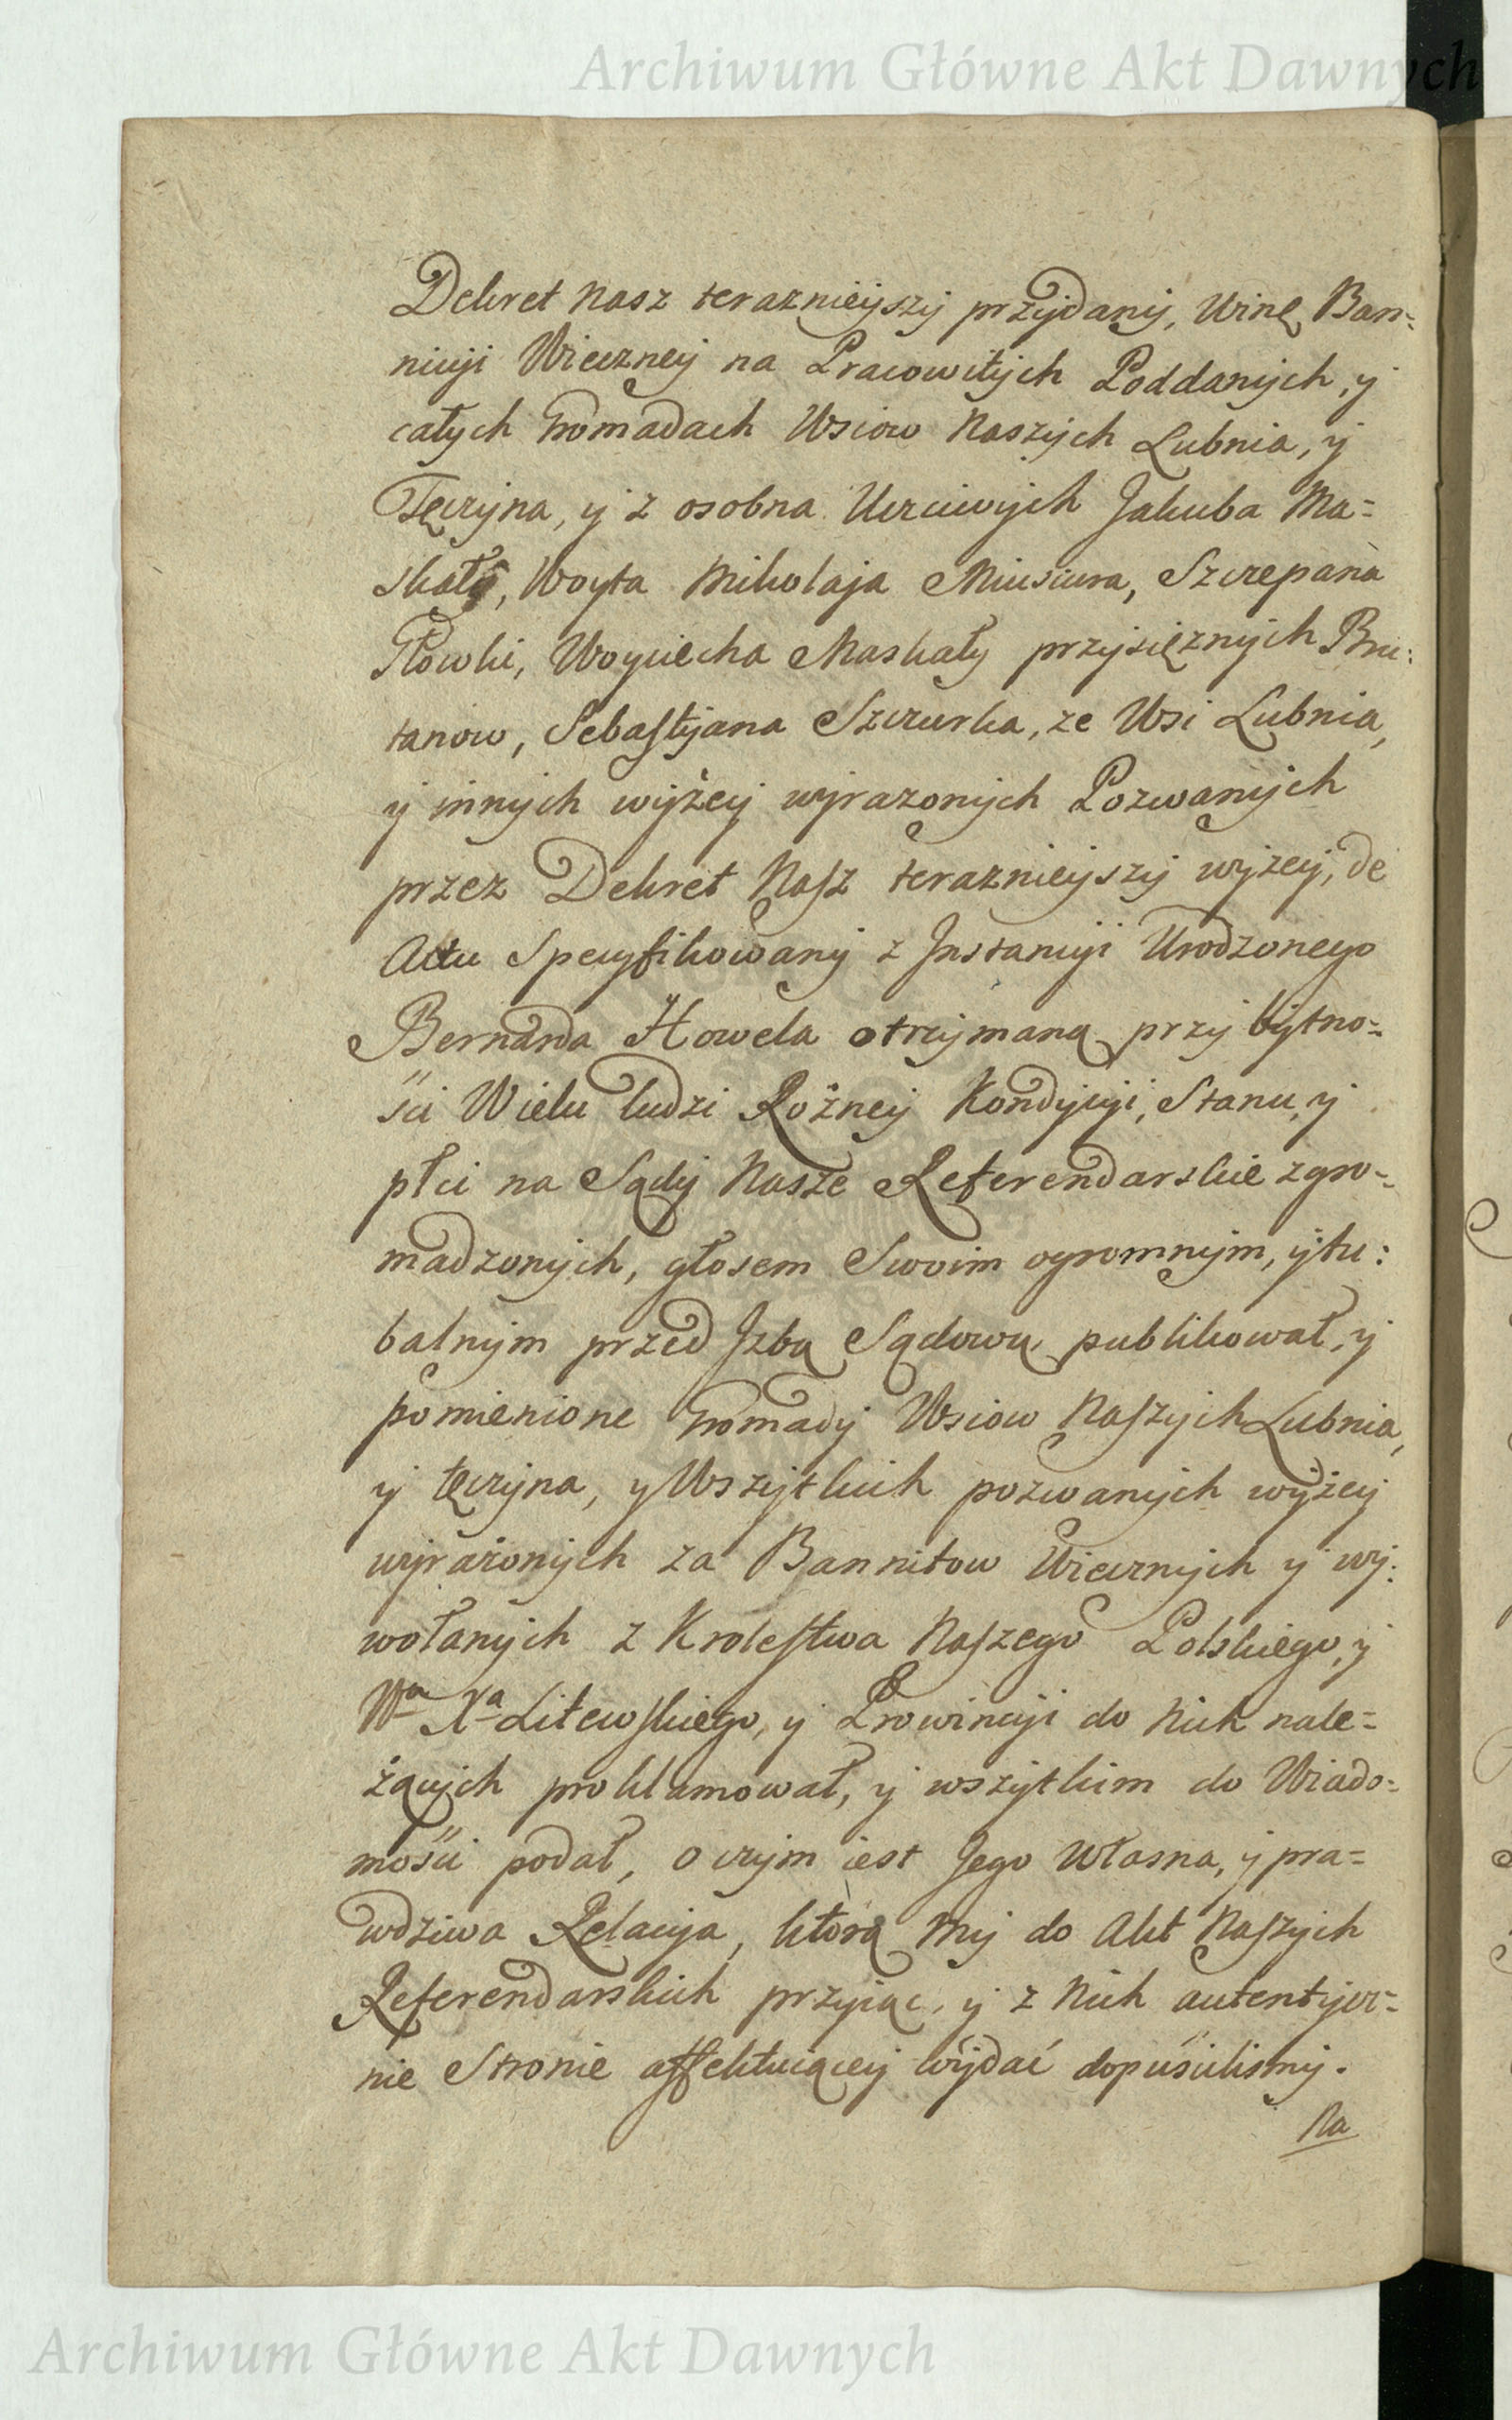 Archiwum Główne Akt Dawnych
Dekret Nasz terazniejszy przydany, Winę Ban=
nicyi Wieczney na Pracowitych Poddanych, y
całych Gromadach Wsiow Naszych Lubnia, y
Tęczyna, y z osobna Uczciwych Jakuba Ma=
skały, Woyta Mikołaja Miusiura, Szczepana
Głowki, Woyciecha Maskały przysięznych Bru:
tanow, Sebastyana Szczurka, ze Wsi Lubnia,
y innych wyżey wyrazonych Pozwanych
przez Dekret Nasz terazniejszy wyzey, de
Actu Specyfikowany z Instancyi Urodzonego
Bernarda Howela otrzymaną przy bytno=
ści Wielu ludzi Rożney Kondycyi, Stanu, y
płci na Sądy Nasze Referendarskie zgro=
madzonych, głosem Swoim ogromnym, y tu:
balnym przed Izbą Sądową publikował, y
pomienione Gromady Wsiow Naszych Lubnia,
y tęczyna, y Wszytkich pozwanych wyżey
wyrażonych za Bannitow Wiecznych y wy:
wołanych z Krolestwa Naszego Polskiego, y
Wa Xa Litewskiego, y Prowincyi do Nich nale=
żących proklamował, y wszytkim do Wiado=
mości podał, o czym iest Jego Własna, y pra=
wdziwa Relacyja, ktorą My do Akt Naszych
Referendarskich przyiąc, y z Nich autentycz=
nie Stronie affektuiącey wydać dopuścilismy.
Na
Archiwum Główne Akt Dawnych